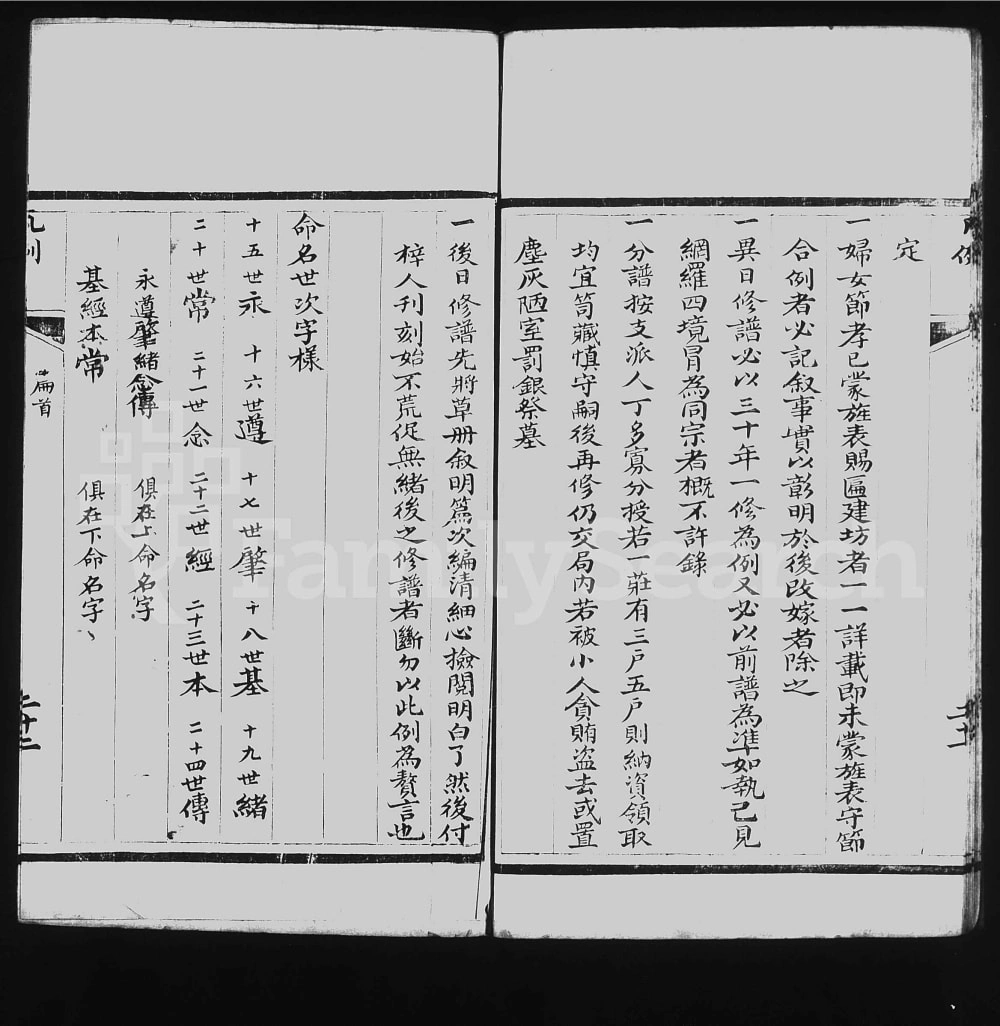 凡例
定
一婦女節孝已蒙旌表賜匾建坊者一一詳載即未蒙旌表守節
合例者必記叙事實以彰明於後改嫁者除之
一異日修譜必以三十年一修為例又必以前譜為準如執己見
網羅四境冒為同宗者概不許錄
一分譜按支派人丁多寡分授若一莊有三户五户則納資領取
均宜笥藏慎守嗣後再修仍交局內若被小人貪賄盗去或置
塵灰陋室罰銀祭墓
二十一
一後日修譜先將草册叙明篇次編清細心撿閱明白了然後付
梓人刊刻始不荒促無緒後之修譜者斷勿以此例為贅言也
命名世次字樣
十五世永 十六世遵 十七世肇 十八世基 十九世緒
二十世常 二十一世念 二十二世經 二十三世本 二十四世傳
永遵肇緒念傳 俱在上命名字
基經本常 俱在下命名字
凡例 篇首 二十二
FamilySearch